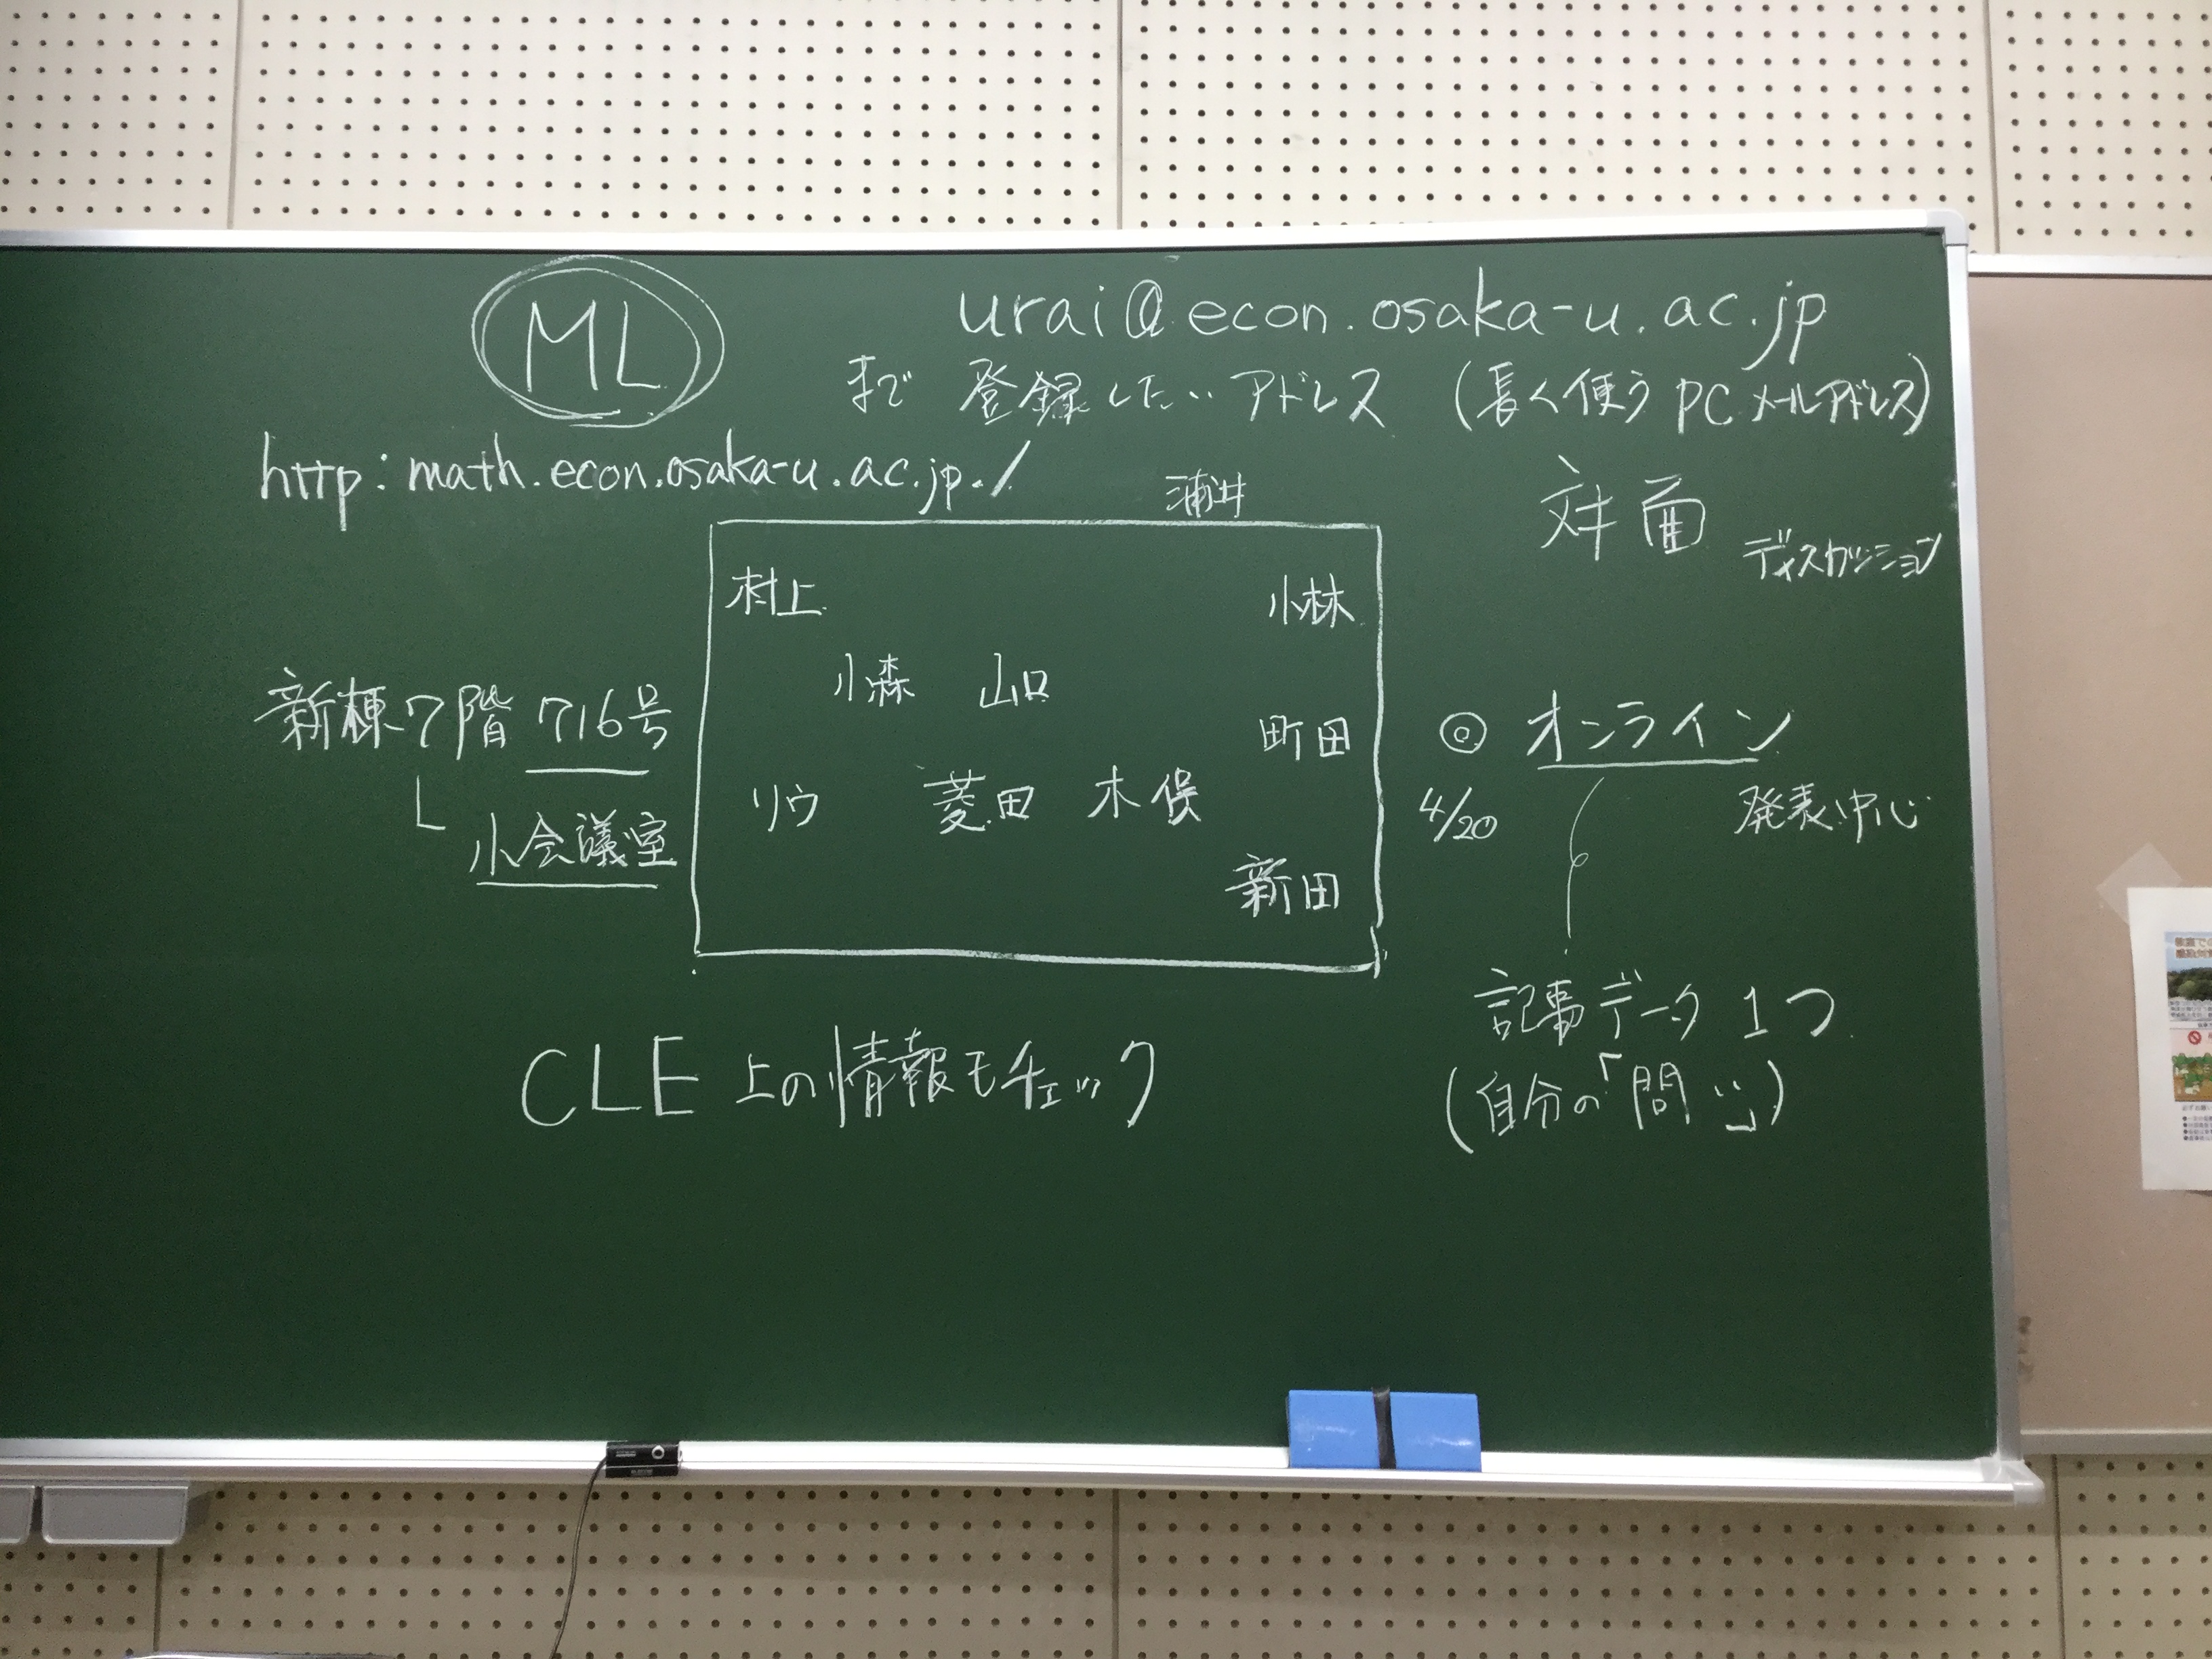 ML
urai@econ.osaka-u.ac.jp
まで 登録したい アドレス (長く使う PC メールアドレス)
http:math.econ.osaka-u.ac.jp./
浦井
対面
ディスカッション
村上
小林
小森 山口
新棟7階 716号
町田
◎ オンライン
リウ 菱田 木俣
4/20
発表中心
小会議室
新田
記事データ 1つ
(自分の「問い」)
CLE 上の情報もチェック